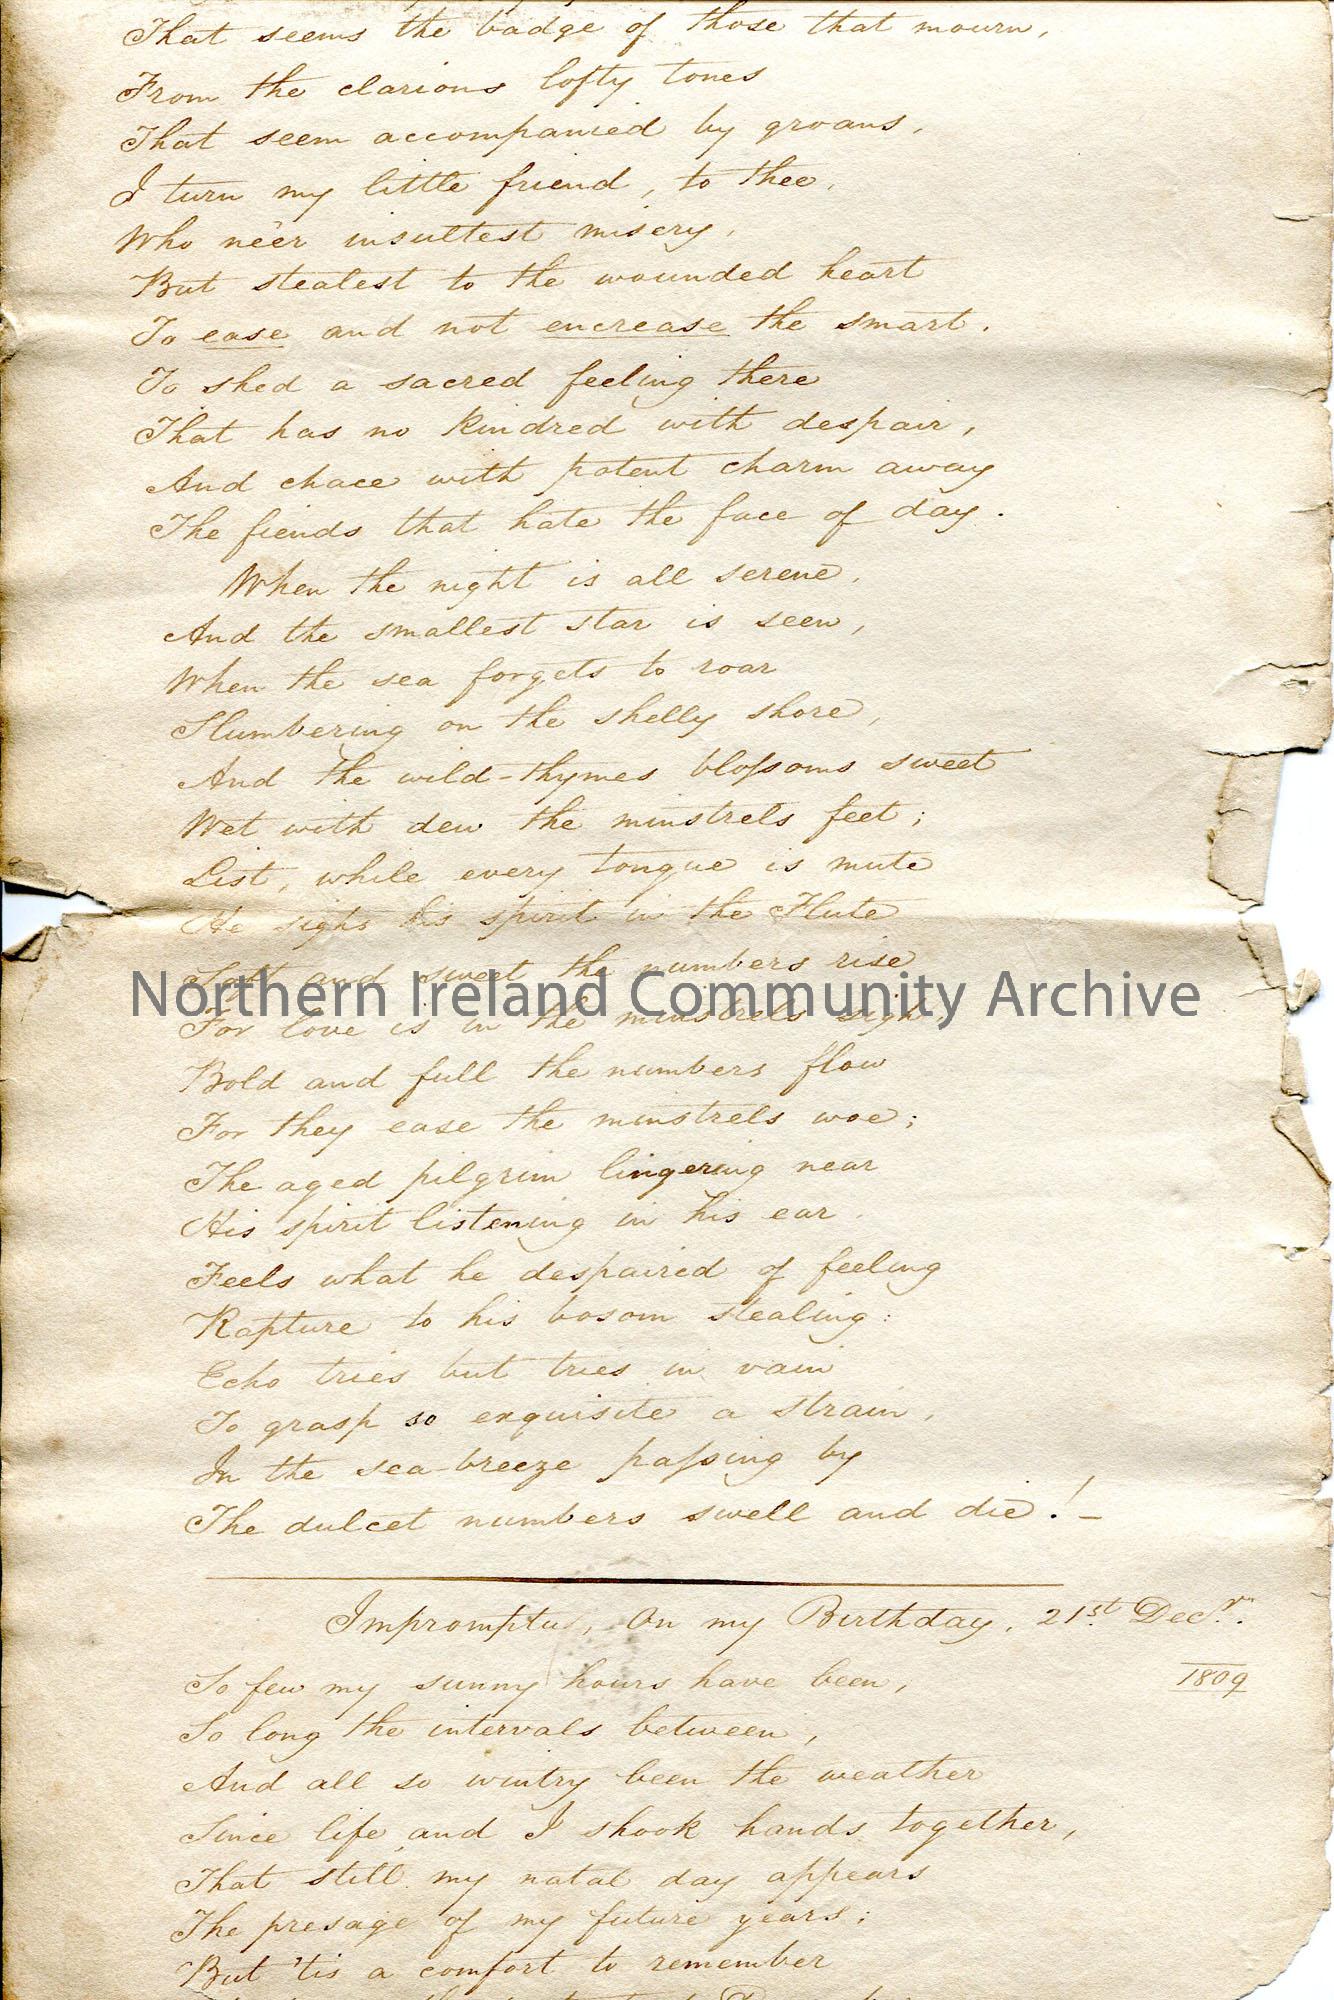 That seems the badge of those that mourn,
From the clarions lofty tones
That seem accompanied by groans,
I turn my little friend, to thee,
Who néer insultest misery,
But stealest to the wounded heart
To ease and not encrease the smart.
To shed a sacred feeling there
That has no kindred with despair,
And chace with potent charm away
The fiends that hate the face of day.
When the night is all serene,
And the smallest star is seen,
When the sea forgets to roar
Slumbering on the shelly shore,
And the wild-thymes blossoms sweet
Wet with dew the minstrels feet;
List, while every tongue is mute
He sighs his spirit in the Flute
Soft and sweet the numbers rise
Northern Ireland Community Archive
For love is in the minstrels sigh,
Bold and full the numbers flow
For they ease the minstrels woe;
The aged pilgrim lingering near
His spirit listening in his ear.
Feels what he despaired of feeling
Rapture to his bosom stealing:
Echo tries but tries in vain
To grasp so exquisite a strain,
In the sea-breeze passing by
The dulcet numbers swell and die! –
Impromptus, On my Birthday, 21st Decr.
1809
So few my sunny hours have been,
So long the intervals between,
And all so wintry been the weather
Since life and I shook hands together,
That still my natal day appears
The presage of my future years;
But 'tis a comfort to remember